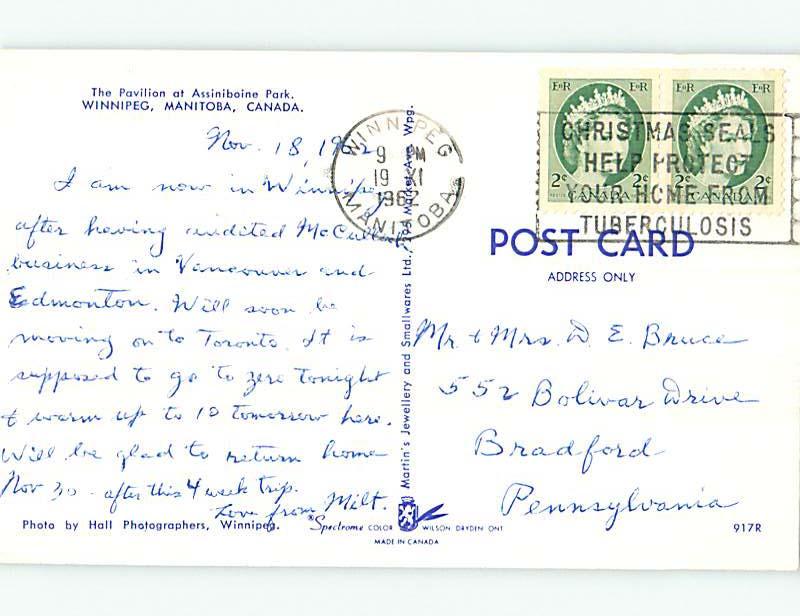 The Pavilion at Assiniboine Park.
WINNIPEG, MANITOBA, CANADA.
Nov. 18, 1962
I am now in Winnipeg
after having audited McCulloch
business in Vancouver and
Edmonton. Will soon be
moving on to Toronto. It is
supposed to go to zero tonight
& warm up to 10 tomorrow here.
Will be glad to return home
Nov 30 - after this 4 week trip.
Love from Milt.
Photo by Hall Photographers, Winnipeg.
Spectrome COLOR WILSON DRYDEN ONT
MADE IN CANADA
Martin's Jewellery and Smallwares Ltd., Market Ave. Wpg.
WINNIPEG
9 PM
19 XI
1962
MANITOBA
E II R E II R
E II R E II R
2¢ 2¢
CANADA
2¢ 2¢
CANADA
CHRISTMAS SEALS
HELP PROTECT
YOUR HOME FROM
TUBERCULOSIS
POST CARD
ADDRESS ONLY
Mr. & Mrs. D. E. Bruce
552 Bolivar Drive
Bradford
Pennsylvania
917R